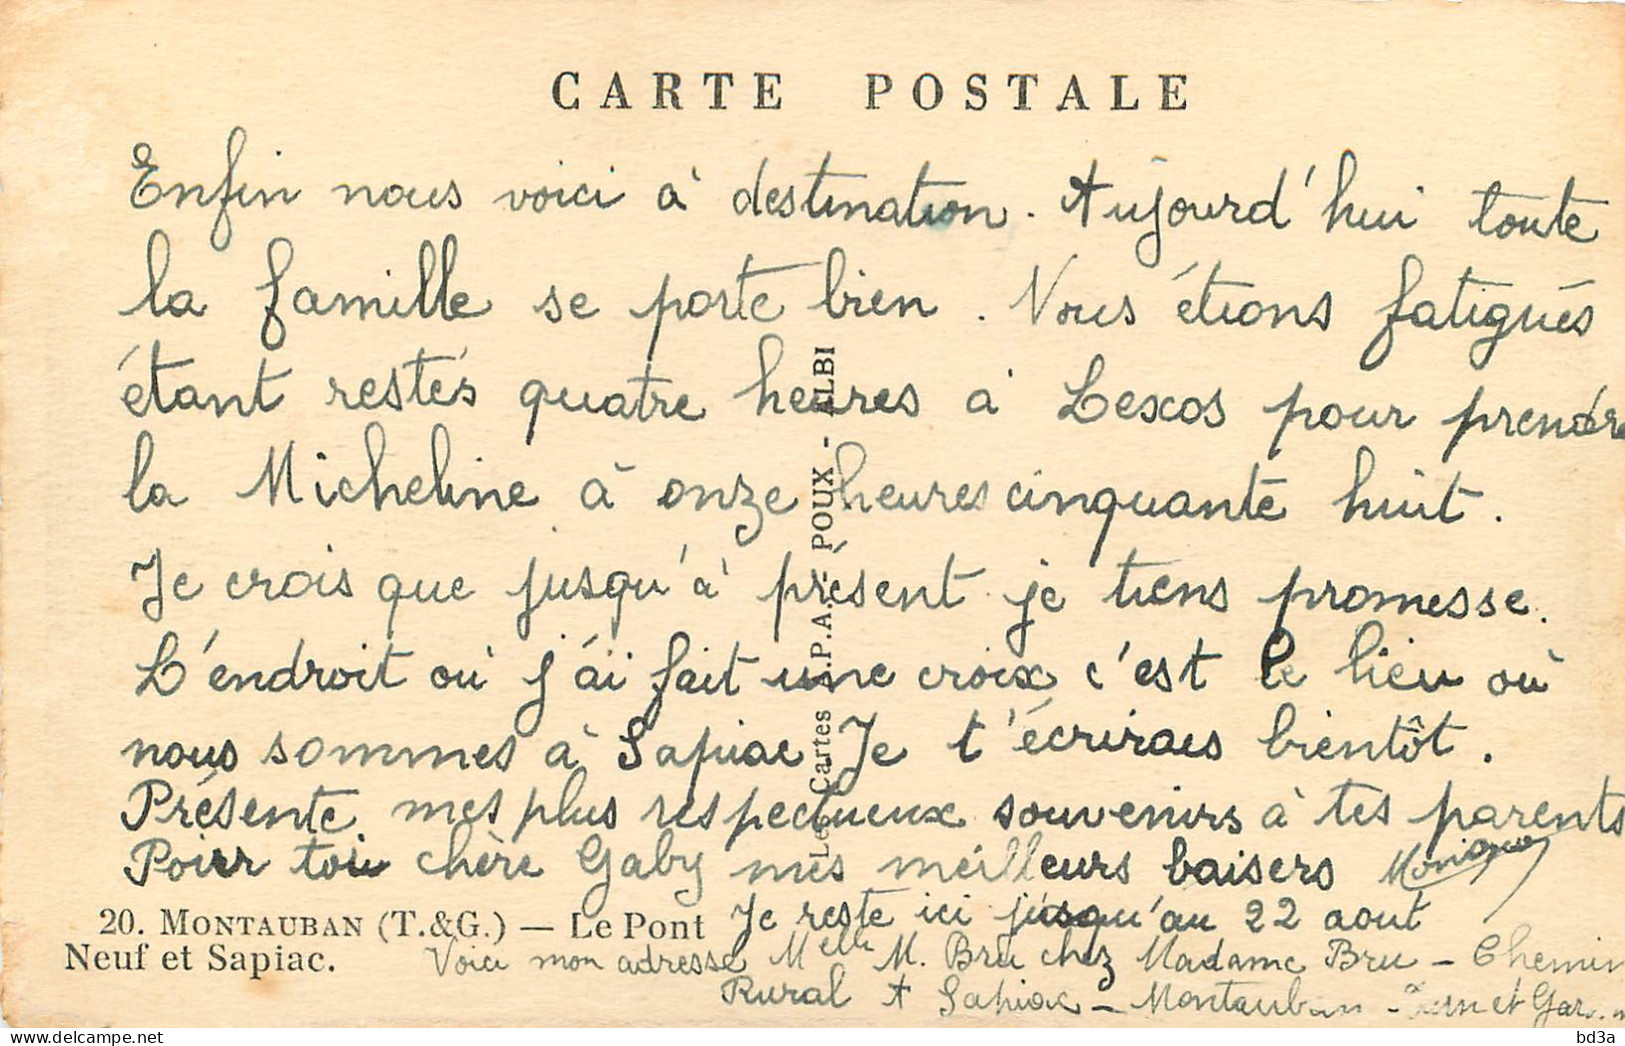 CARTE POSTALE
Enfin nous voici à destination. Aujourd'hui toute
la famille se porte bien. Nous étions fatigués
étant restés quatre heures à Lexos pour prendre
la Micheline à onze heures cinquante huit.
Je crois que jusqu'à présent je tiens promesse.
L'endroit où j'ai fait une croix c'est le lieu où
nous sommes à Sapiac Je t'écrirais bientôt.
Présente mes plus respectueux souvenirs à tes parents
Pour toi chère Gaby mes meilleurs baisers
Je reste ici jusqu'au 22 aout
20. MONTAUBAN (T.&G.) — Le Pont
Neuf et Sapiac.
Voici mon adresse Melle M. Bru chez Madame Bru - Chemin
Rural A Sapiac - Montauban - Tarn et Gar
Les Cartes A.P.A. - POUX - ALBI
bd3a